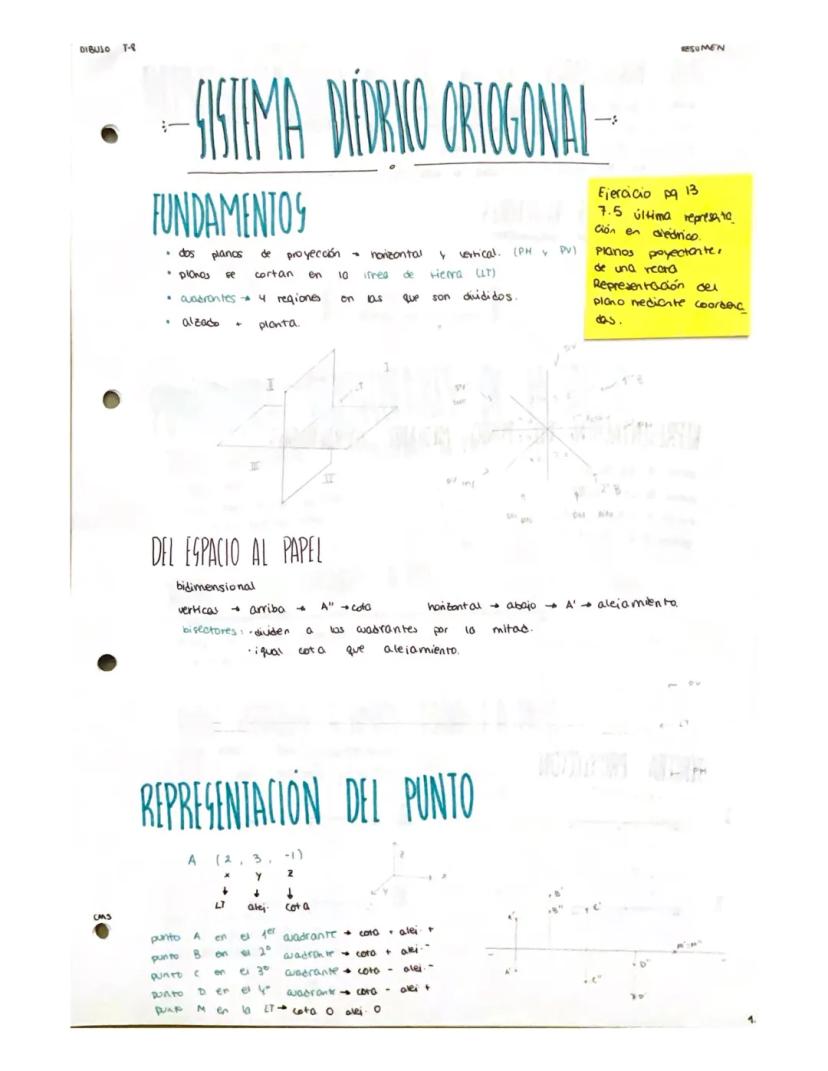 DIBUJO T-8
RESUMEN
SISTEMA DIÉDRICO ORTOGONAL
FUNDAMENTOS
• dos planos de proyección → horizontal y vertical. (PH y PV)
• planos se cortan en la línea de tierra (LT)
• cuadrantes → 4 regiones en las que son divididos.
• alzado + planta.
Ejercicio pg 13
7.5 última representa_
ción en diédrico.
Planos proyectantes
de una recta
Representación del
plano mediante coordena_
das.
I
II
III
IV
DEL ESPACIO AL PAPEL
bidimensional
vertical → arriba → A'' → cota
horizontal → abajo → A' → alejamiento.
bisectores: · dividen a los cuadrantes por la mitad.
· igual cota que alejamiento.
PV
LT
PH
REPRESENTACIÓN DEL PUNTO
A (2, 3, -1)
x y z
LT alej. cota
z
x
y
CMS
punto A en el 1er cuadrante → cota + alej. +
punto B en el 2º cuadrante → cota + alej. -
punto C en el 3º cuadrante → cota - alej. -
punto D en el 4º cuadrante → cota - alej +
punto M en la LT → cota 0 alej. 0
B'
B''
C'
A'
M'=M''
D'
C''
1.